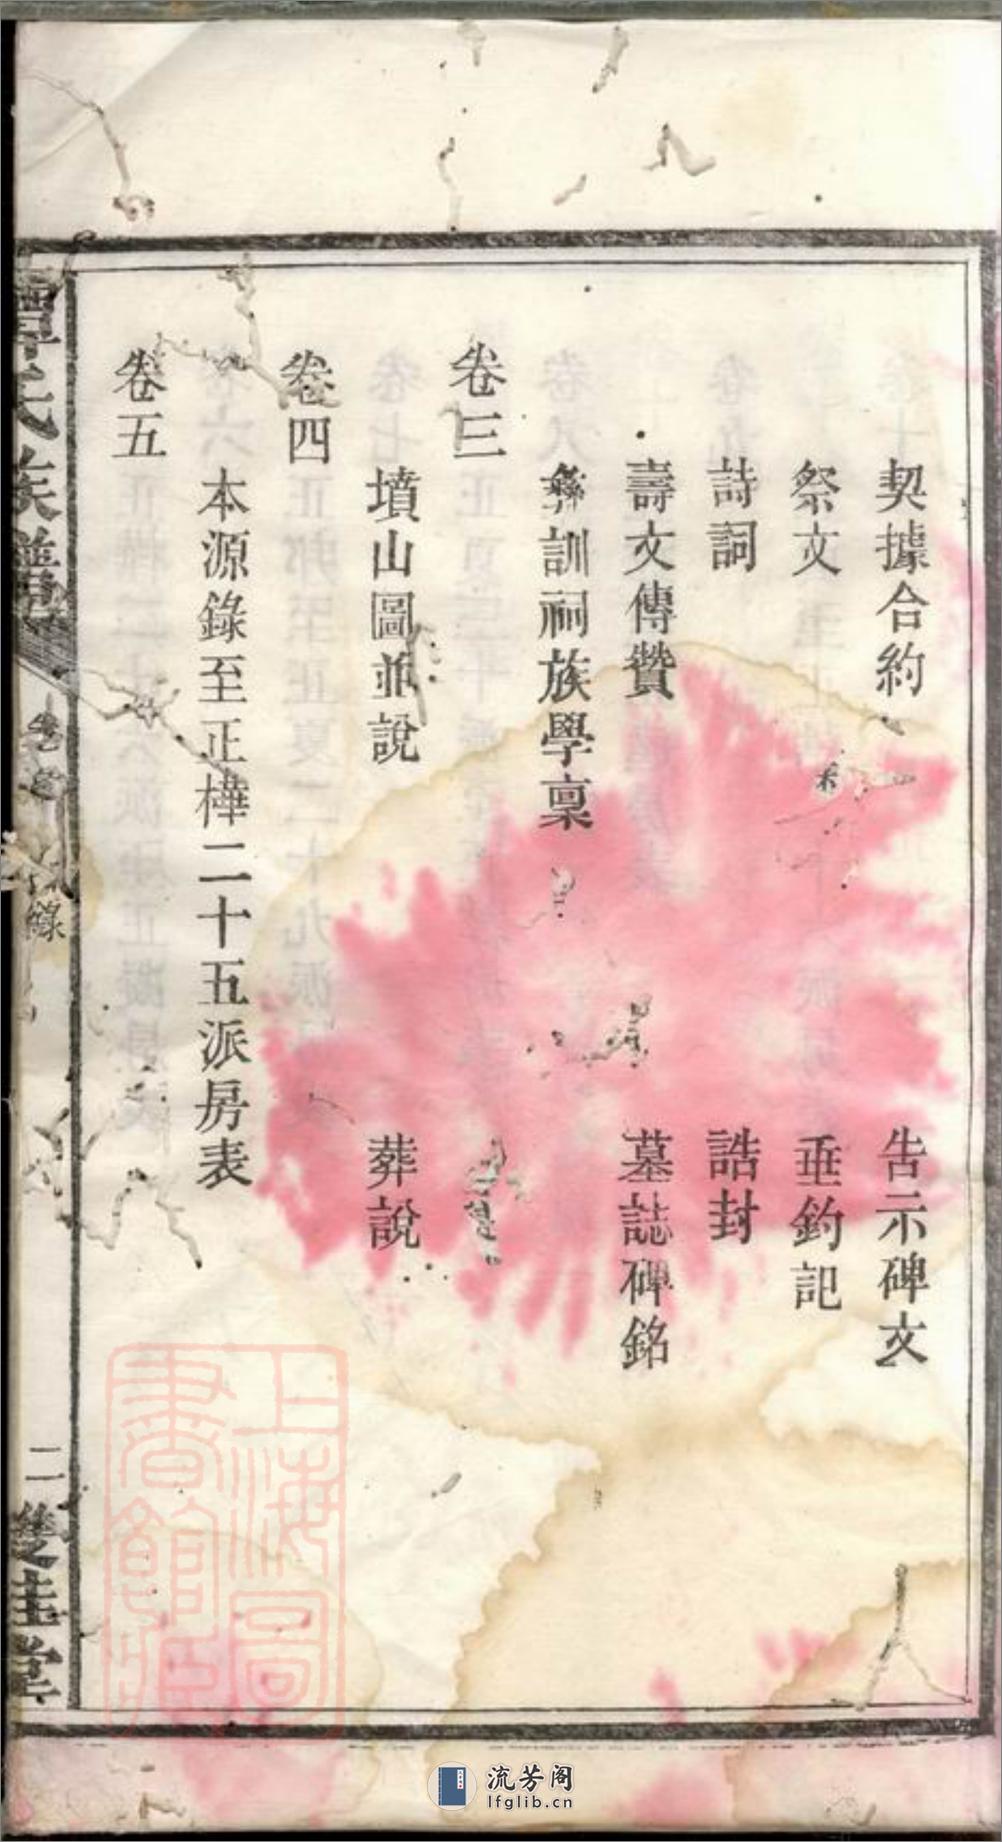 契據合約 告示碑文
祭文 垂釣記
詩詞 誥封
壽文傳贊 墓誌碑銘
卷三
彝訓祠族學稟
墳山圖並說 葬說
卷四
本源錄至正樺二十五派房表
卷五
譚氏族譜 卷首 錄 二 雙桂堂
上海圖書館藏
流芳阁
lfglib.cn